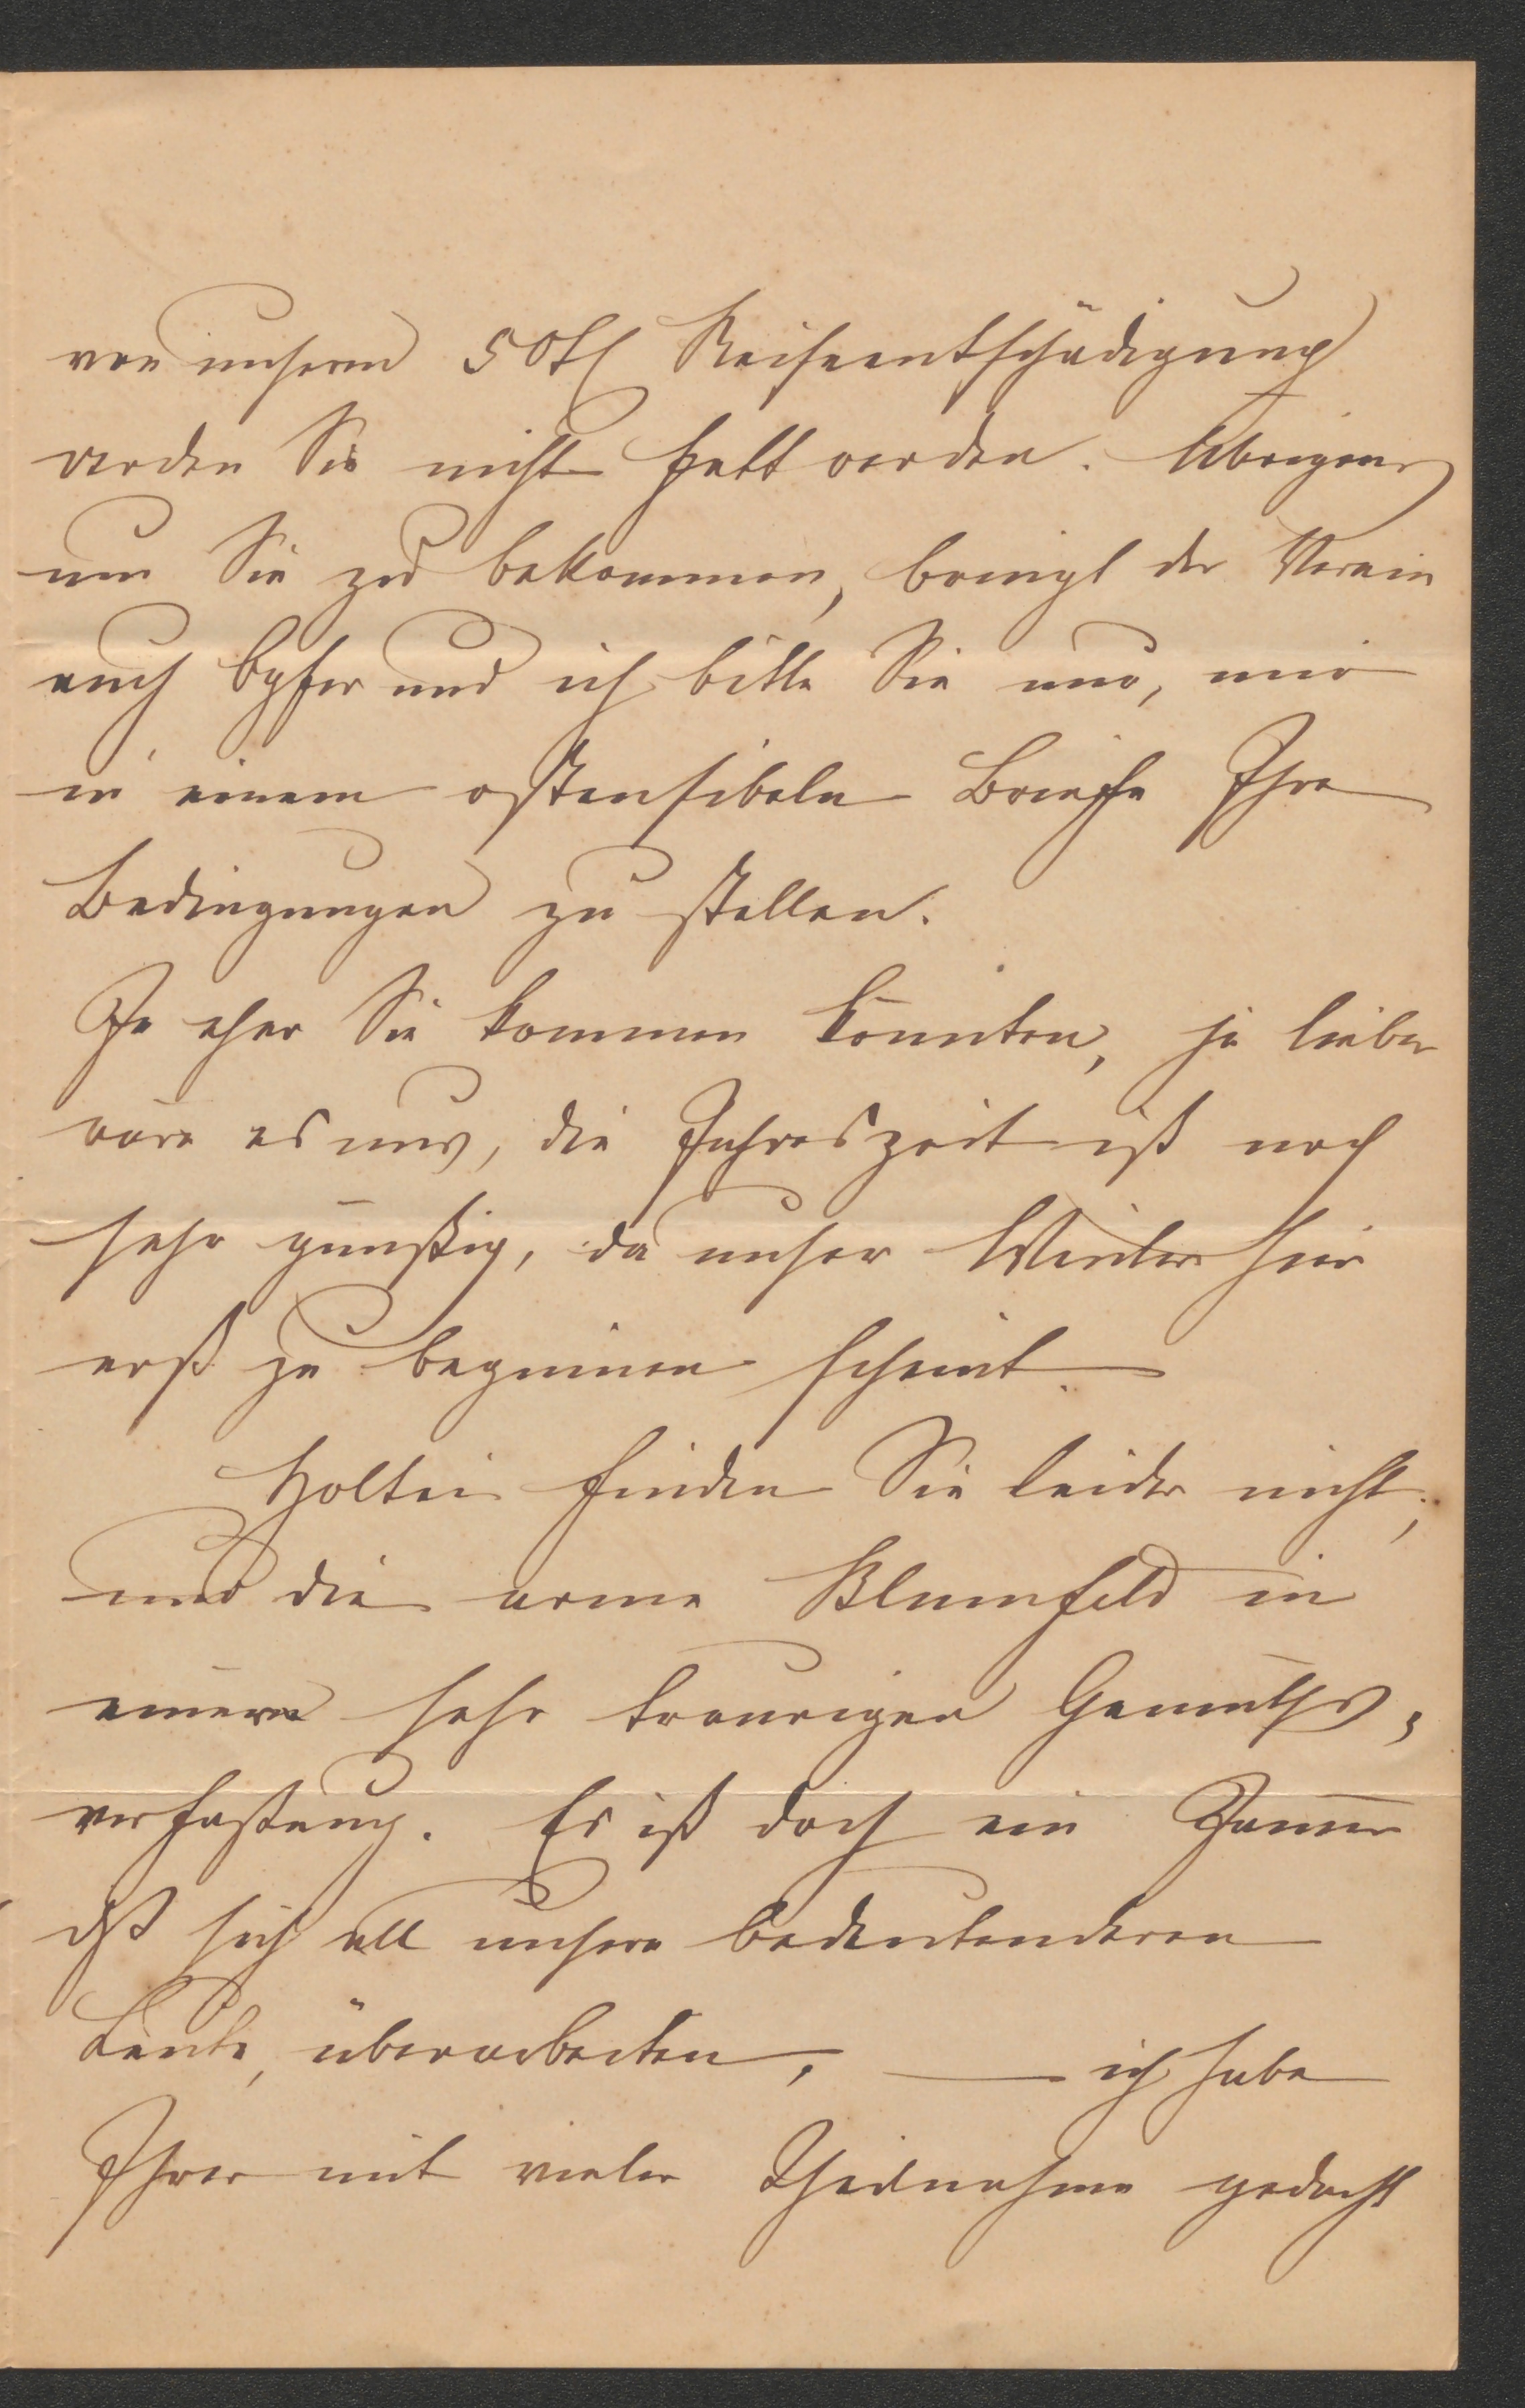 von unseren 50 fl Reiseentschädigung
werden Sie nicht fett werden. Übrigens
um Sie zu bekommen, bringt der Verein
auch Opfer und ich bitte Sie nur, mir
in einem ostensibeln Briefe Ihre
Bedingungen zu stellen.
Je eher Sie kommen könnten, je lieber
wäre es uns, die Jahreszeit ist noch
sehr günstig, da unser Winter hier
erst zu beginnen scheint.
Holtei finden Sie leider nicht,
und die arme Blumfeld in
einer sehr traurigen Gemüths-
verfassung. Es ist doch ein Jammer
dß sich all unsere bedeutenderen
Leute, überarbeiten, — ich habe
Ihrer mit vieler Theilnahme gedacht